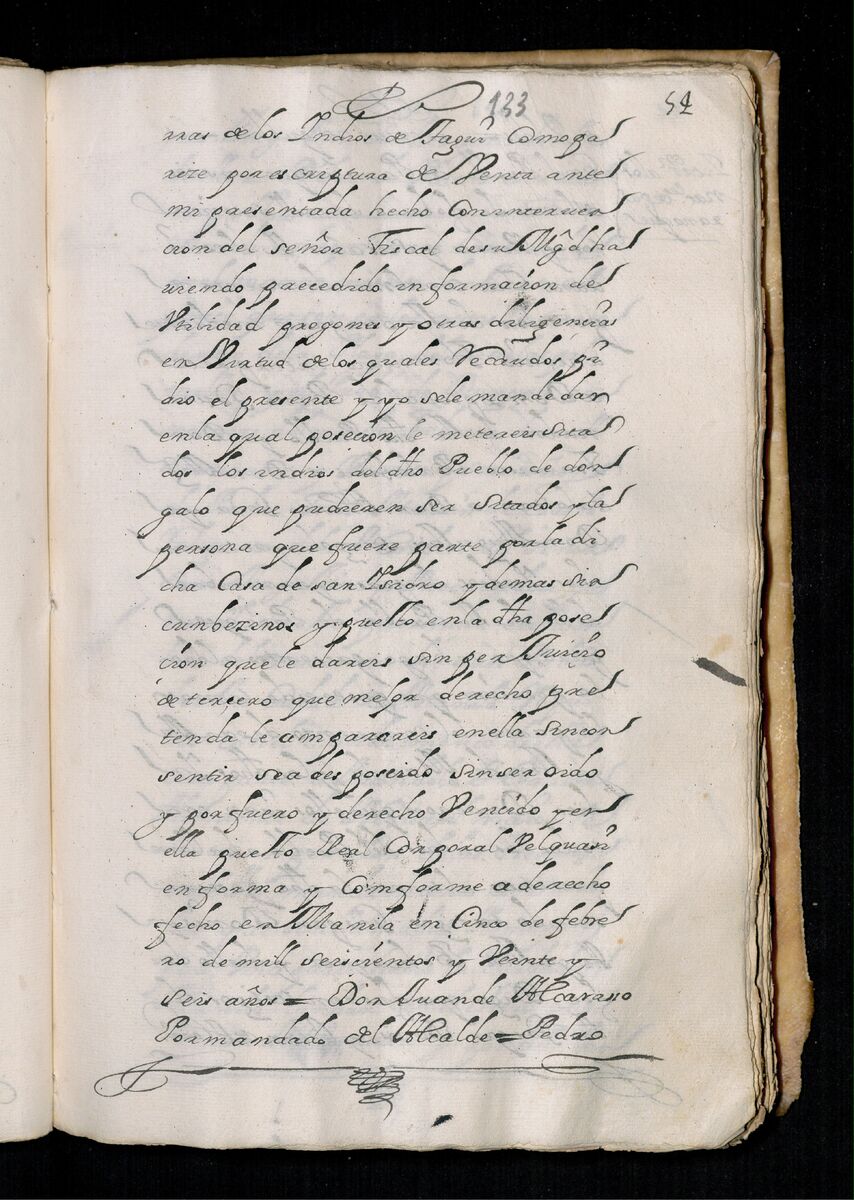 133
54
rras de los Indios de Taguĩ Comopa
reze por escriptura de Venta ante
mi presentada hecho Con interuen
cion del señor Fiscal de su Mgd ha
uiendo precedido informacion de
Vtilidad pregones y otras diligencias
en Virtud de los quales Recaudos pi
dio el presente y yo sele mande dar
en la qual posecion le metereis sita
dos los indios del dho Pueblo de don
galo que pudieren ser sitados y la
persona que fuere parte por la di
cha Casa de san Isidro y demas sir
cunbezinos y puesto en la dha pose
cion que le dareis sin per Juicio
de tercero que mejor derecho pre
tenda le amparareis en ella sin con
sentir sea desposeido sin ser oido
y por fuero y derecho Vencido y en
ella puesto Real Corporal Velquasi
en forma y Comforme a derecho
fecho en Manila en Cinco de febre
ro de mill seiscientos y Veinte y
seis años = Don Juan de Alcarasso
Por mandado del Alcalde = Pedro